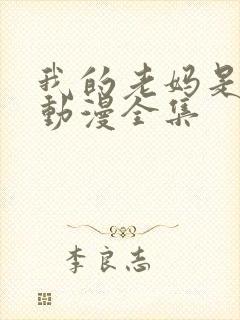 我的老妈是
動漫全集
李良志